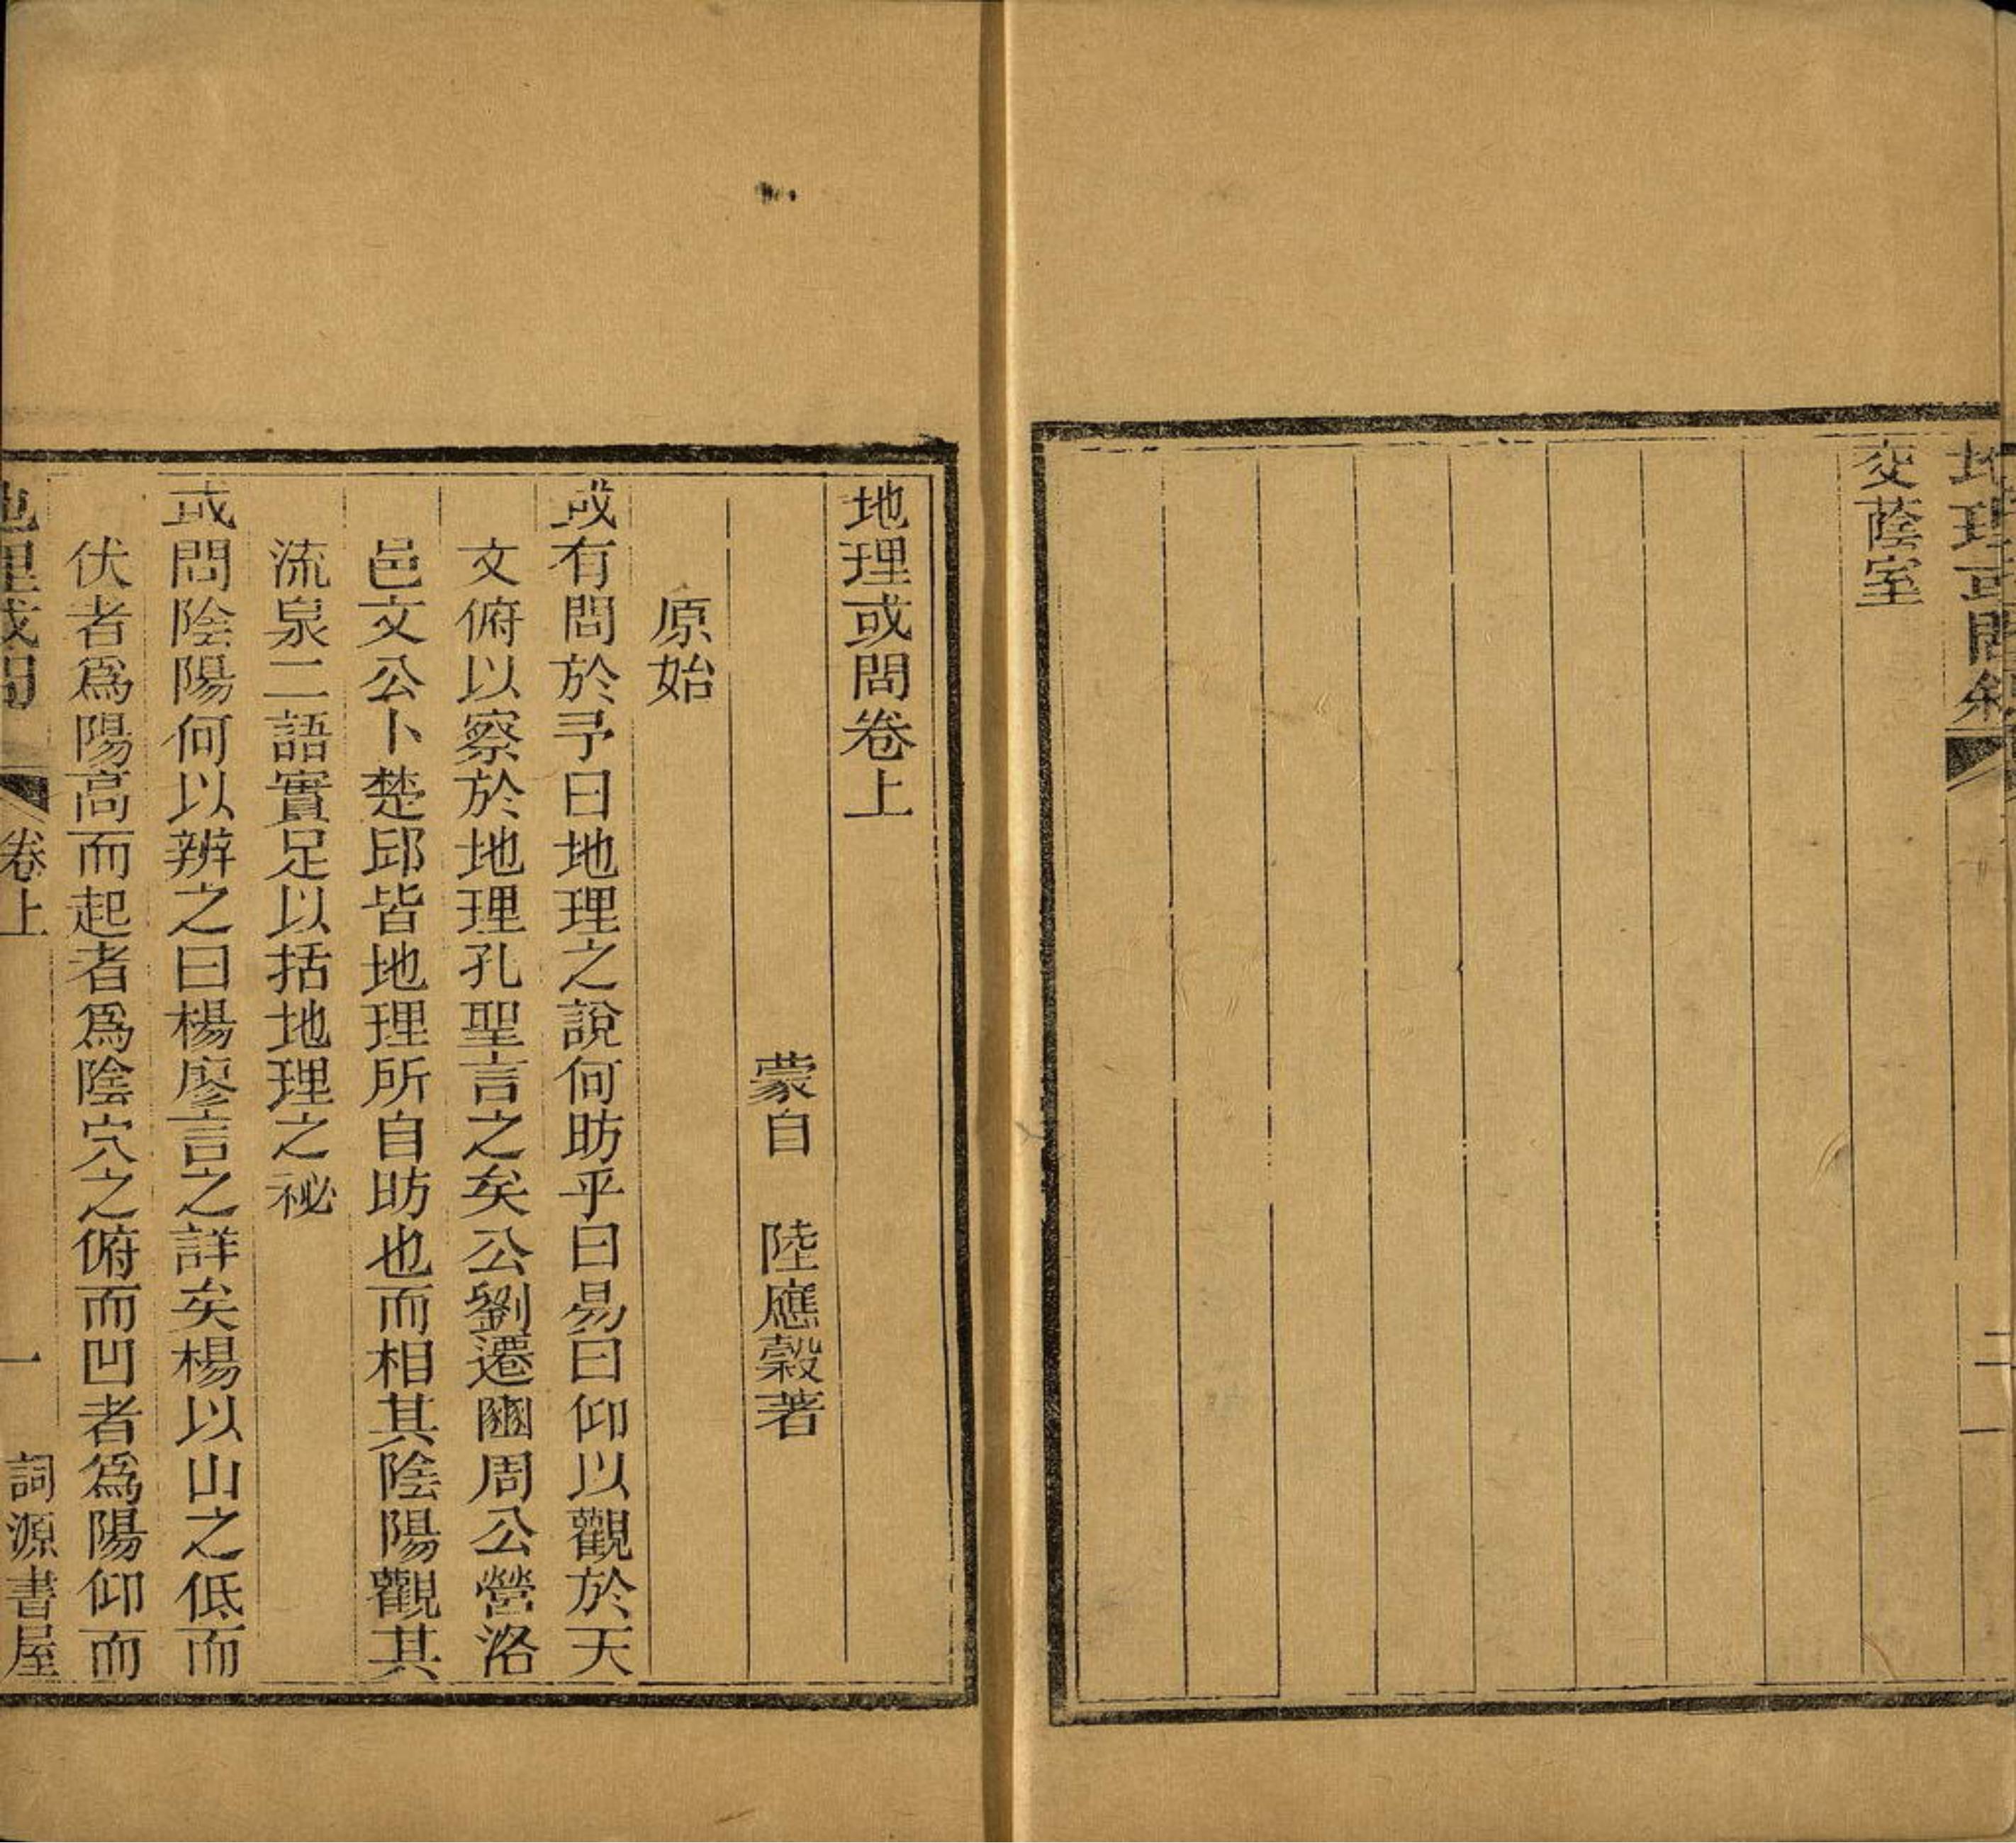 地理或問敘
二
交蔭室
地理或問卷上
蒙自　陸應穀著
原始
或有問於予曰地理之說何昉乎曰易曰仰以觀於天
文俯以察於地理孔聖言之矣公劉遷豳周公營洛
邑文公卜楚邱皆地理所自昉也而相其陰陽觀其
流泉二語實足以括地理之祕
或問陰陽何以辨之曰楊廖言之詳矣楊以山之低而
伏者爲陽高而起者爲陰穴之俯而凹者爲陽仰而
地理或問　卷上　一　詞源書屋